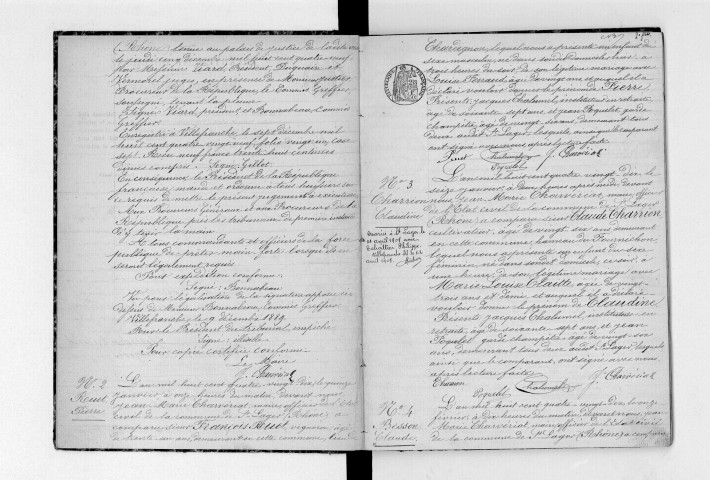 (Rhône) tenue au palais de justice de la dite ville
le jeudi cinq décembre mil huit cent quatre vingt neuf
par Messieurs Viard, Président
Vermorel juges, en présence de Monsieur
Procureur de la République, le Commis Greffier
soussigné, tenant la plume
Signé: Viard, président et Bonnabeau, Commis
Greffier
Enregistré à Villefranche, le sept décembre mil
huit cent quatre vingt neuf, folio vingt un, case
sept. Reçu neuf francs trente huit centimes
décimes compris. Signé: Gillot
En conséquence le Président de la République
française, mande et ordonne à tous huissiers sur
ce requis de mettre le présent jugement à exécution
Aux Procureurs Généraux et aux Procureurs de la
République près les tribunaux de première instance
d'y tenir la main
A tous commandants et officiers de la force
publique de prêter main forte lorsqu'ils en
seront légalement requis
Pour expédition conforme:
Signé: Bonnabeau
Vu pour légalisation de la signature apposée ci
dessus de Monsieur Bonnabeau, Commis Greffier
Villefranche le 9 décembre 1889
Pour le Président du tribunal, empêché
Signé:
Pour copie certifiée conforme
Le Maire
J. Charvériat
N° 2
Pierre
L'an mil huit cent quatre vingt dix, le quinze
janvier à onze heures du matin, devant nous
Jean Marie Charvériat maire officier de l'état
civil de la commune de St Lager (Rhône) a
comparu sieur François vigneron âgé
de trente un ans, demeurant en cette commune, lieu
Chardignon, lequel nous a présenté un enfant du
sexe masculin, né dans son domicile hier à
trois heures du soir, de son légitime mariage avec
Louise âgée de vingt ans, auquel il a
déclaré vouloir donner le prénom de Pierre
Présents: Jacques Chalumel, instituteur en retraite
âgé de soixante sept ans et Jean Poquelet garde
champêtre, âgé de vingt huit ans, demeurant tous
deux audit St Lager, lesquels ainsi que le comparant
ont signé avec nous après lecture faite
Chalumel J. Charvériat
Poquelet
N° 3
Charrion
Claudine
L'an mil huit cent quatre vingt dix, le
seize janvier, à deux heures après midi, devant
nous Jean Marie Charvériat, maire officier
de l'Etat civil de la commune de St Lager
(Rhône) a comparu sieur Claude Charrion
cultivateur, âgé de vingt six ans demeurant
en cette commune, hameau du
lequel nous a présenté un enfant du sexe
féminin, né dans son domicile, ce jour, à
une heure de son légitime mariage avec
Marie Louise Claitte, âgée de vingt
trois ans et demi, et auquel il a déclaré
vouloir donner le prénom de Claudine
Présents Jacques Chalumel, instituteur en
retraite, âgé de soixante sept ans et Jean
Poquelet garde champêtre, âgé de vingt huit ans,
demeurant tous deux audit St Lager, lesquels
ainsi que le comparant, ont signé avec nous
après lecture faite
Charrion Chalumel J. Charvériat
Poquelet
N° 4
Besson
Claude
L'an mil huit cent quatre vingt dix le onze
février, à dix heures du matin, devant nous, Jean
Marie Charvériat, maire officier de l'Etat civil
de la commune de St Lager (Rhône) a comparu